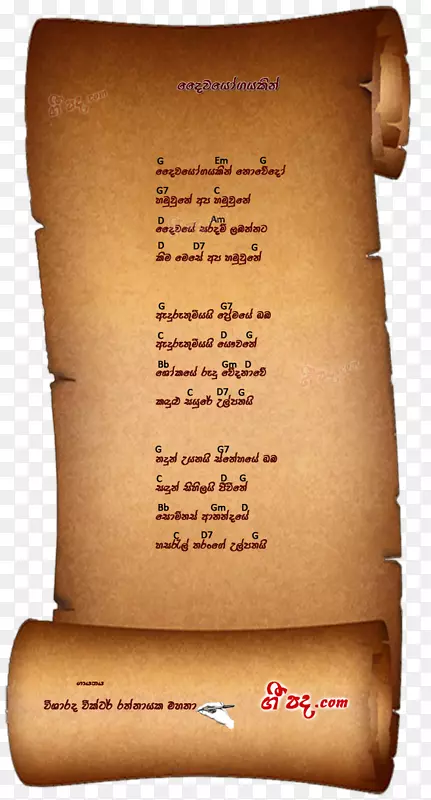 ගී පද.com
දෛවයෝගයකින්
G Em G
දෛවයෝගයකින් නොවේදෝ
G7 C
හමුවුනේ අප හමුවුනේ
D Am
දෛවයේ සරදම් ලබන්නට
D D7 G
කිම මෙසේ අප හමුවුනේ
G G7
ඇදුරුතුමියයි ප්‍රේමයේ ඔබ
C D G
ඇදුරුතුමියයි යෞවනේ
Bb Gm D
ශෝකයේ රුදු වේදනාවේ
C D7 G
කඳුළු සයුරේ උල්පතයි
G G7
නදුන් උයනයි ස්නේහයේ ඔබ
C D G
සඳුන් සිහිලයි ජීවනේ
Bb Gm D
සොම්නස් ආනන්දයේ
C D7 G
හසරැල් තරංගේ උල්පතයි
ගායනය
විශාරද වික්ටර් රත්නායක මහතා
ගී පද.com